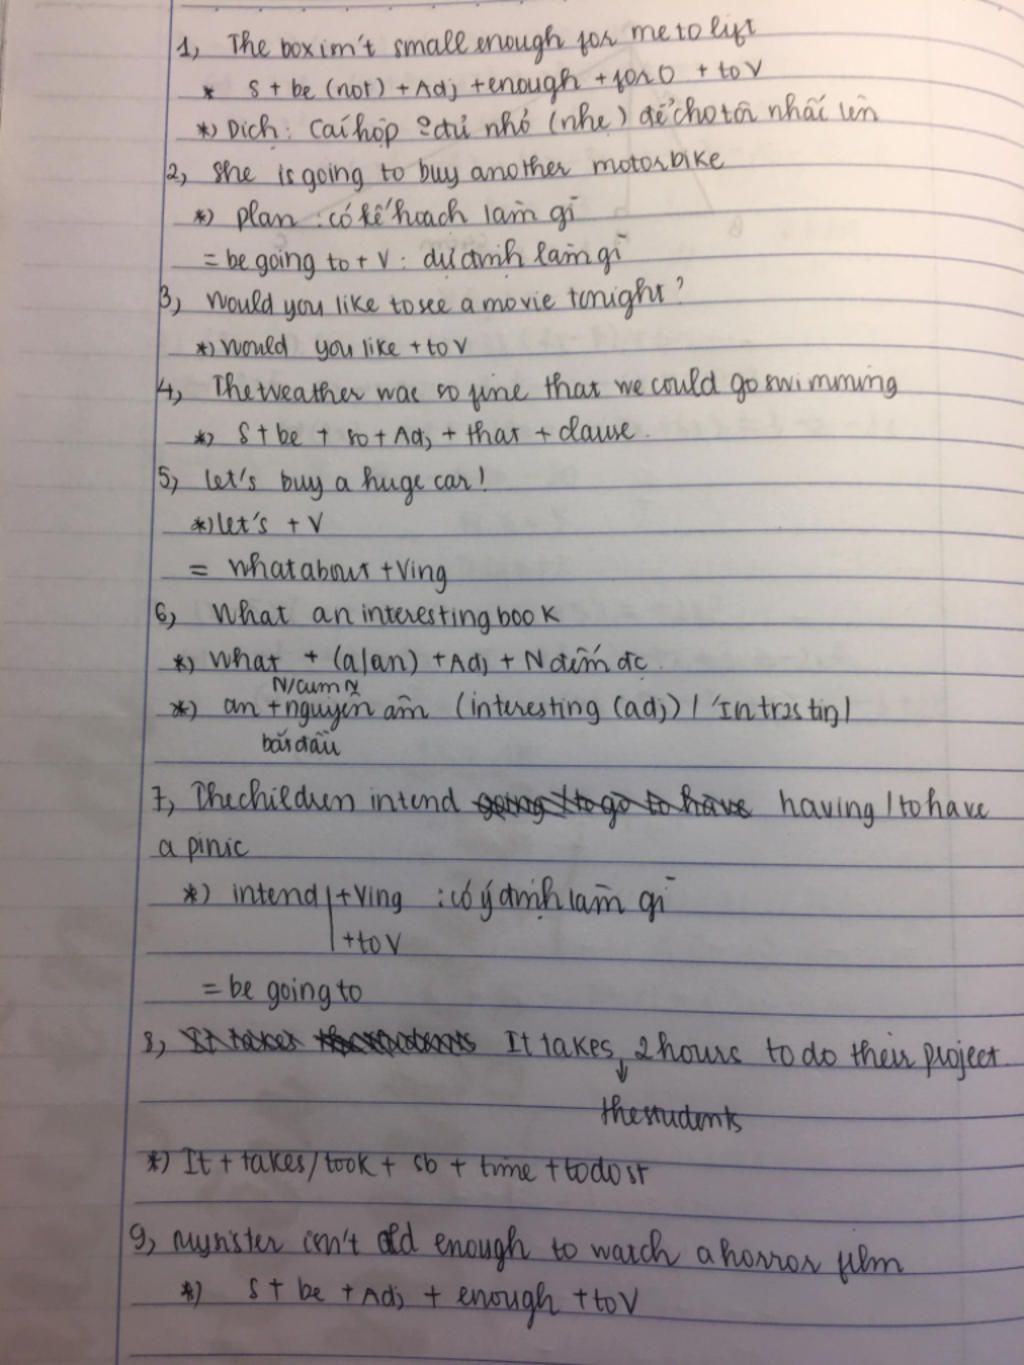 1, The box isn't small enough for me to lift
* S + be (not) + Adj + enough + for O + to V
*) Dịch: Cái hộp ko đủ nhỏ (nhẹ) để cho tôi nhấc lên
2, She is going to buy another motorbike
*) plan: có kế hoạch làm gì
= be going to + V: dự định làm gì
3, Would you like to see a movie tonight?
*) Would you like + to V
4, The weather was so fine that we could go swimming
*) S + be + so + Adj + that + clause.
5, Let's buy a huge car!
*) let's + V
= what about + Ving
6, What an interesting book
*) What + (a/an) + Adj + N đếm đc.
N/cụm N
*) an + nguyên âm (interesting (adj)) / 'Intrəstiŋ/
bắt đầu
7, The children intend going to go to have having / to have
a pinic
*) intend + Ving : có ý định làm gì
+ to V
= be going to
8, It takes the students It takes 2 hours to do their project.
the students
*) It + takes/took + sb + time + to do st
9, My sister isn't old enough to watch a horror film
*) S + be + Adj + enough + to V